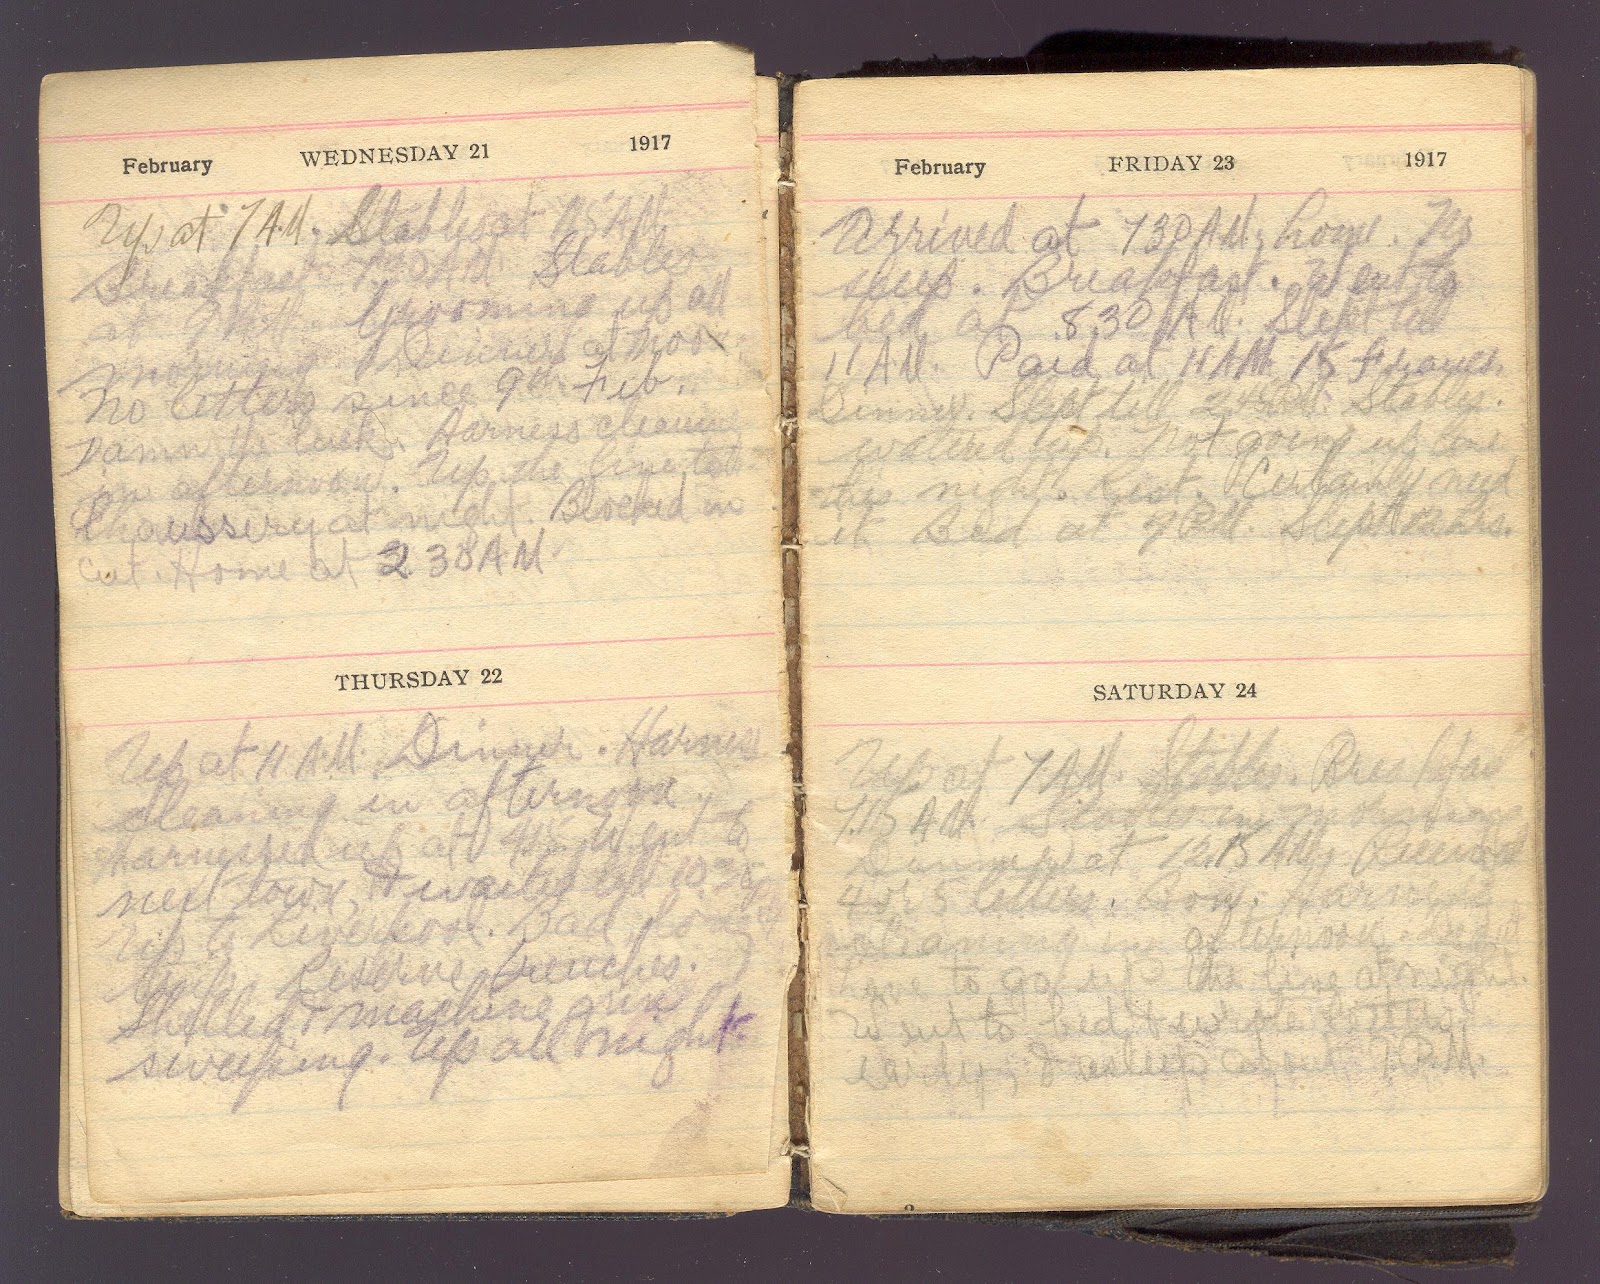 February WEDNESDAY 21 1917
Up at 7 A.M. Stables at 7.15 A.M.
Breakfast 7.30 A.M. Stables
at 9 A.M. Grooming up all
morning. Dinner at Noon
No letters since 9th Feb.
Damn the luck. Harness cleaning
in afternoon. Up the line to
at night. Blocked in
cut. Home at 2 30 A M
THURSDAY 22
Up at 11 A.M. Dinner. Harness
cleaning in afternoon.
Harnessed up at 4.15. Went to
next town, & waited till 10.30
Up to Liverpool. Bad
Reserve trenches.
Shelled & machine gun
sweeping. Up all night.
February FRIDAY 23 1917
Arrived at 730 A.M. home. No
sleep. Breakfast. Went to
bed at 8.30 A.M. Slept till
11 A.M. Paid at 11 A.M. 15 francs.
Dinner. Slept till 2.45 P.M. Stables.
watered up. Not going up line
this night. Rest. Certainly need
it Bed at 7 P.M. Slept 12 hrs.
SATURDAY 24
Up at 7 A.M. Stables. Breakfast
7.15 A.M. Stables in morning
Dinner at 12.15 A.M. Received
4 or 5 letters. Harness
cleaning in afternoon. Didn't
have to go up the line at night.
Went to bed & wrote letters
early, & asleep about 7 P.M.